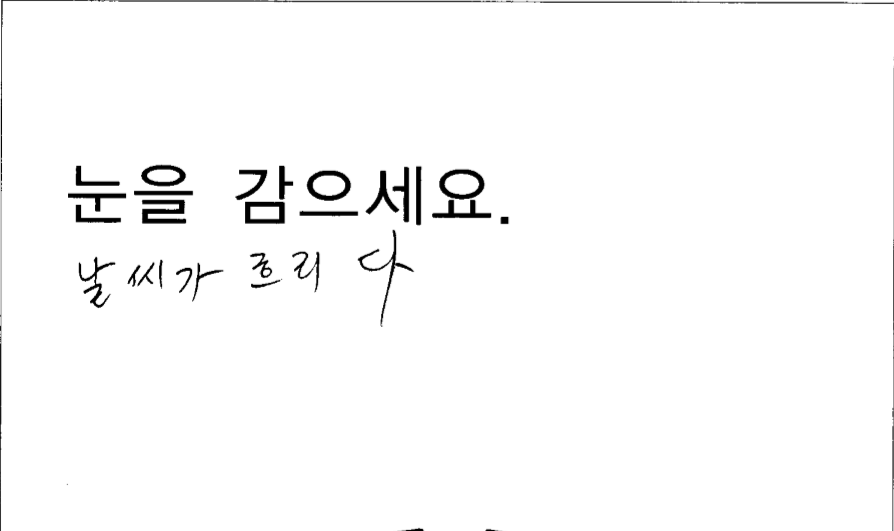 눈을 감으세요.
날씨가 흐리 다